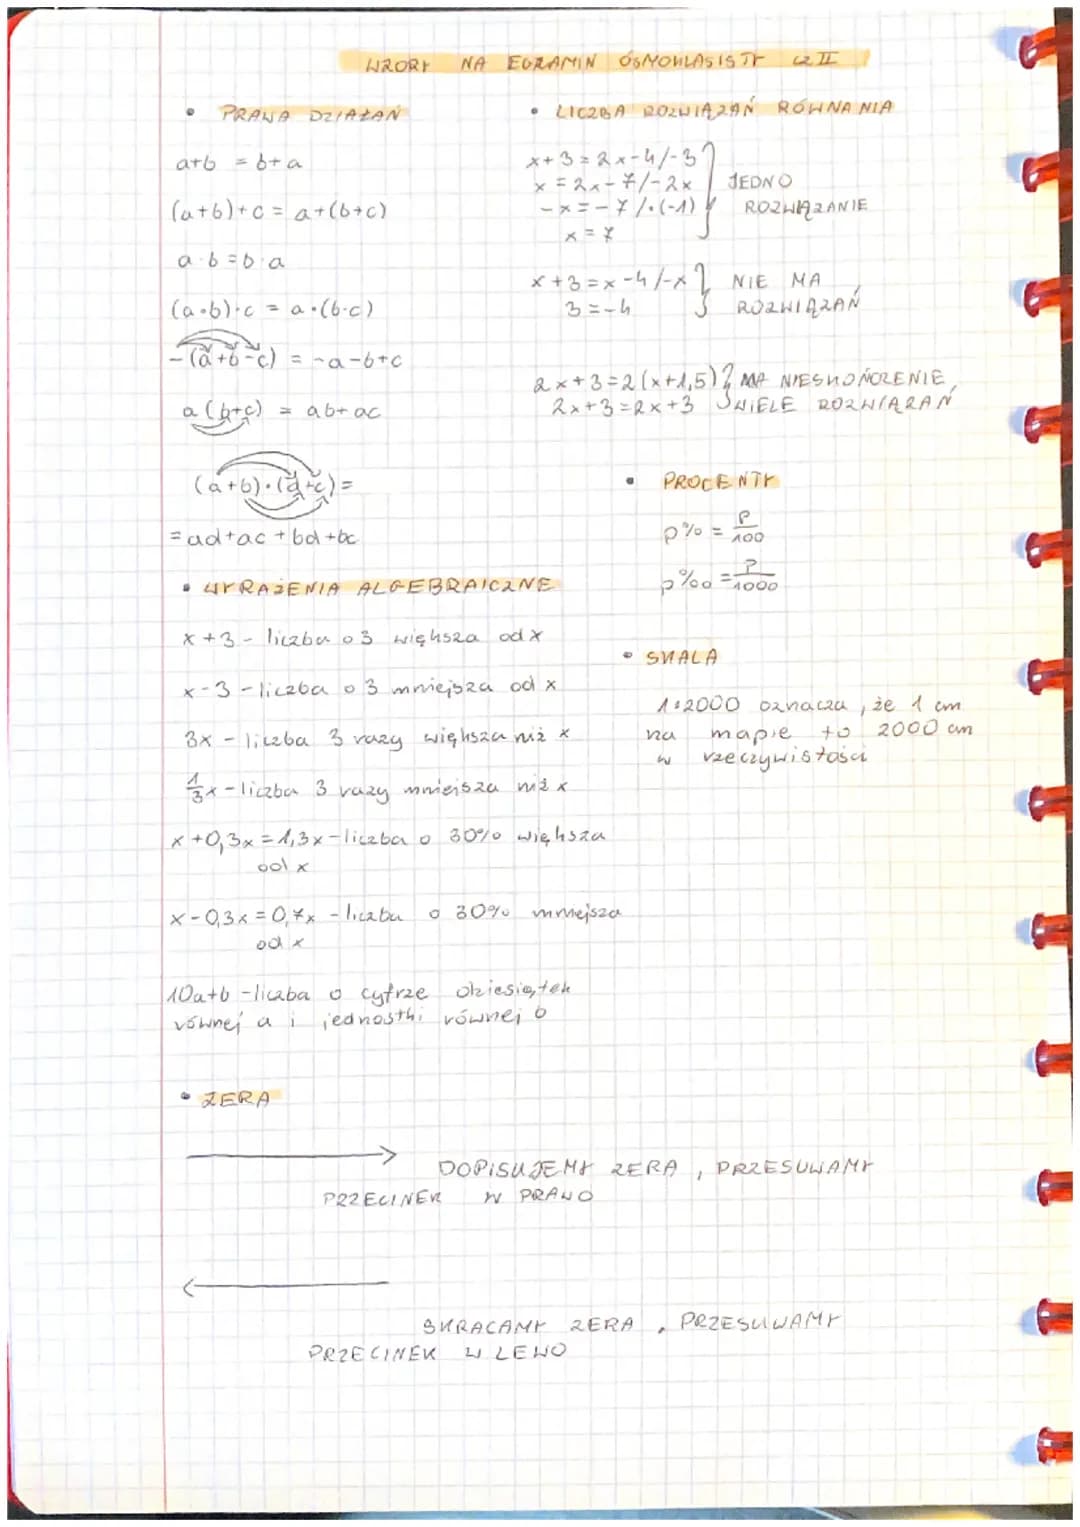 WZORY NA EGZAMIN ÓSMOKLASISTY CZ II
• PRAWA DZIAŁAŃ
a+b = b+a
(a+b)+c = a+(b+c)
a·b=b·a
(a·b)·c = a·(b·c)
-(a+b-c) = -a-b+c
a(b+c) = ab+ac
(a+b)·(d+c)=
=ad+ac+bd+bc
• WYRAŻENIA ALGEBRAICZNE
x+3 - liczba o 3 większa od x
x-3 - liczba o 3 mniejsza od x
3x - liczba 3 razy większa niż x
1/3x - liczba 3 razy mniejsza niż x
x+0,3x=1,3x - liczba o 30% większa
od x
x-0,3x=0,7x - liczba o 30% mniejsza
od x
10a+b - liczba o cyfrze dziesiątek
równej a i jedności równej b
• LICZBA ROZWIĄZAŃ RÓWNANIA
x+3=2x-4/-3
x=2x-7/-2x
-x=-7/·(-1)
x=7
JEDNO
ROZWIĄZANIE
x+3=x-4/-x
3=-4
NIE MA
ROZWIĄZAŃ
2x+3=2(x+1,5) MA NIESKOŃCZENIE
2x+3=2x+3 WIELE ROZWIĄZAŃ
• PROCENTY
p% = p/100
p‰ = p/1000
• SKALA
1:2000 oznacza, że 1 cm
na mapie to 2000 cm
w rzeczywistości
• ZERA
DOPISUJEMY ZERA, PRZESUWAMY
PRZECINEK W PRAWO
SKRACAMY ZERA, PRZESUWAMY
PRZECINEK W LEWO